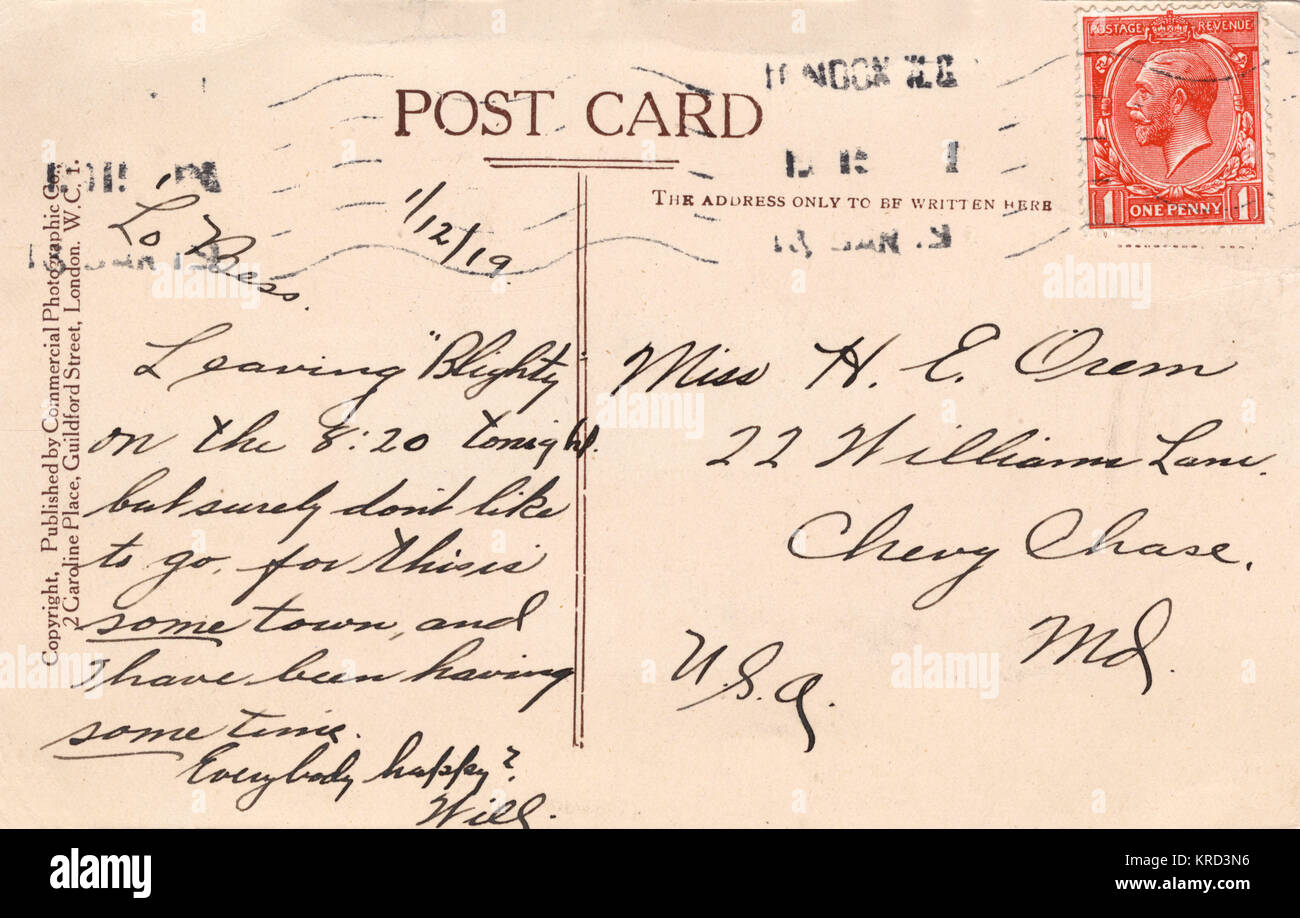 POST CARD
THE ADDRESS ONLY TO BE WRITTEN HERE
POSTAGE REVENUE
1 ONE PENNY 1
LONDON
Copyright, Published by Commercial Photographic Co.,
2 Caroline Place, Guildford Street, London. W.C. 1.
1/12/19
Lo Bess.
Leaving "Blighty"
on the 8:20 tonight.
but surely don't like
to go, for this is
some town, and
I have been having
some time.
Everybody happy?
Will.
Miss H. E. Orem
22 Williams Lane.
Chevy Chase.
Md.
U.S.A.
alamy
alamy stock photo
KRD3N6
www.alamy.com